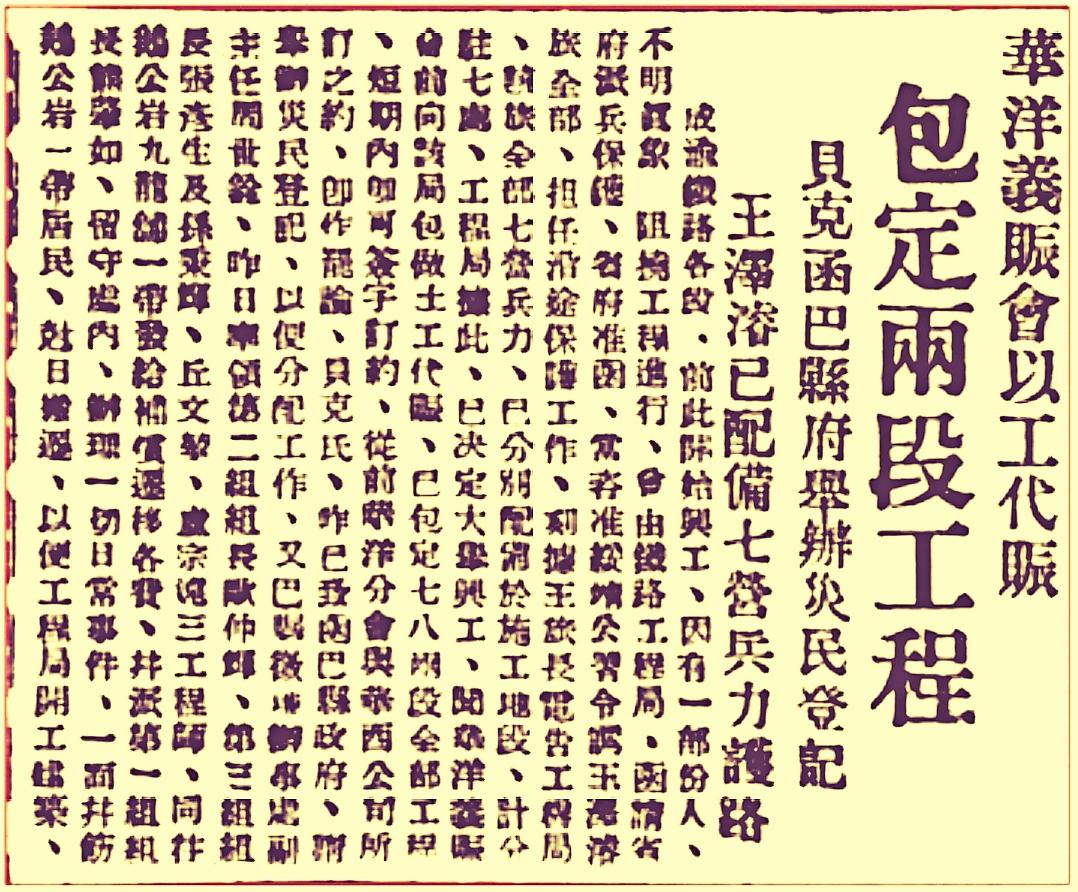 華洋義賑會以工代賑
包定兩段工程
貝克函巴縣府舉辦災民登記
王澤濬已配備七營兵力護路
成渝鐵路各段、前此陸始興工、因有一部份人、
不明眞象 阻撓工程進行、曾由鐵路工程局、函請省
府派兵保護、省府准函、當咨准綏靖公署令調王澤濬
旅全部、担任沿途保護工作、刻據王旅長電告工程局
、該旅全部七營兵力、已分別配備於施工地段、計分
駐七處、工程局據此、已决定大舉興工、聞華洋義賑
會前向該局包做土工代賑、已包定七八兩段全部工程
、短期內即可簽字訂約、從前華洋分會與華西公司所
訂之約、卽作罷論、貝克氏、昨已致函巴縣政府、請
舉辦災民登記、以便分配工作、又巴縣徵地辦事處副
主任周世銓、昨日率領第二組組長歐仲輝、第三組組
長張彥生及孫 輝、丘文 、盧宗 三工程師、同往
鵝公岩九龍舖一帶發給補償遷移各費、幷派第一組組
長熊肇如、留守處內、辦理一切日常事件、一面幷飭
鵝公岩一帶居民、尅日搬遷、以便工程局開工建築、